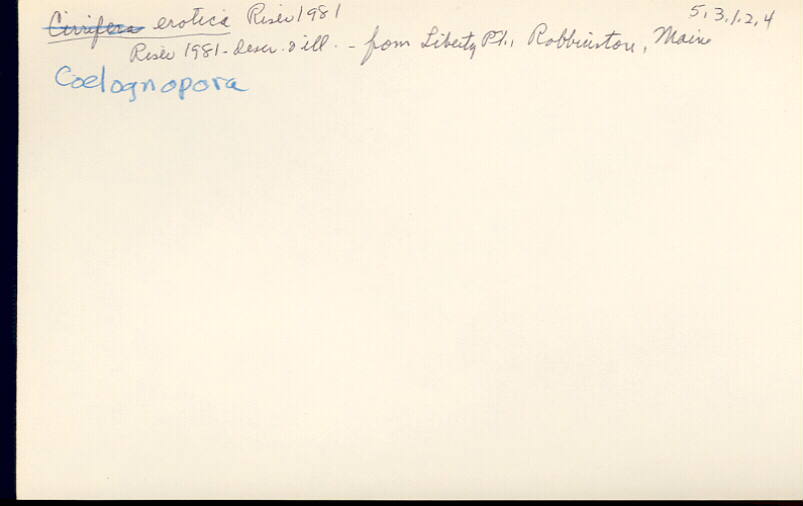 Cirrifera erotica Riser 1981 5.3.1.2.4
Riser 1981 - descr. & ill. - from Liberty Pt., Robbinston, Maine
Coelognopora